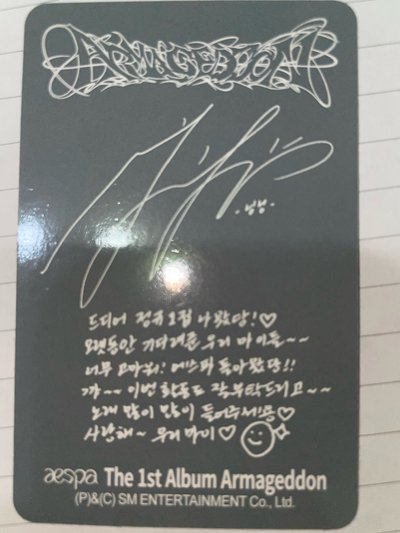 ARMAGEDDON
-닝닝-
드디어 정규 1집 나왔당!♡
오랫동안 기다려준 우리 마이들~~
너무 고마워! 에스파 돌아왔당!!
꺄~~ 이번 활동도 잘 부탁드리고~~
노래 많이 많이 들어주세용♡
사랑해~ 우리 마이♡
aespa The 1st Album Armageddon
(P)&(C) SM ENTERTAINMENT Co., Ltd.